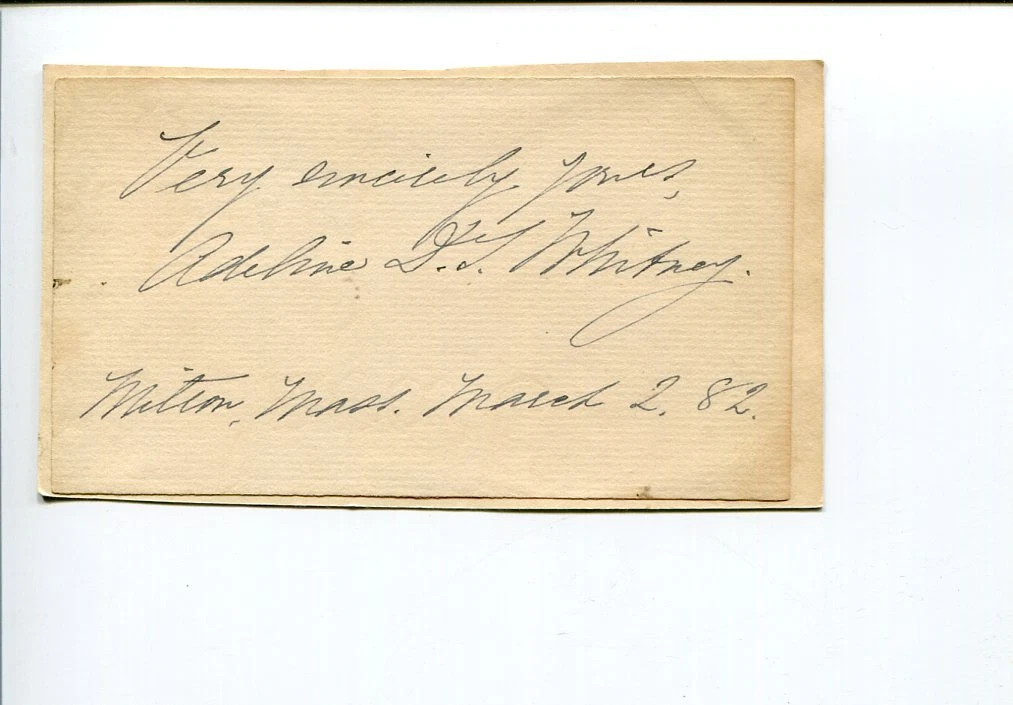 Very sincerely yours,
Adeline D.T. Whitney.
Milton, Mass. March 2. 82.